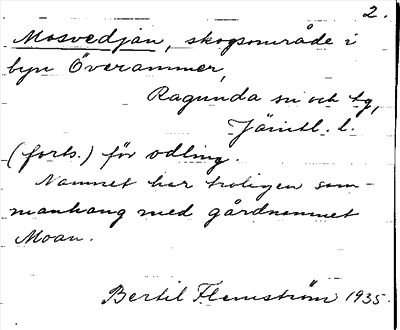 2.
Mosvedjan, skogsområde i
byn Överammer,
Ragunda sn och tg,
Jämtl. l.
(forts.) för odling.
Namnet har troligen sam-
manhang med gårdnamnet
Moan.
Bertil Flemström 1935.